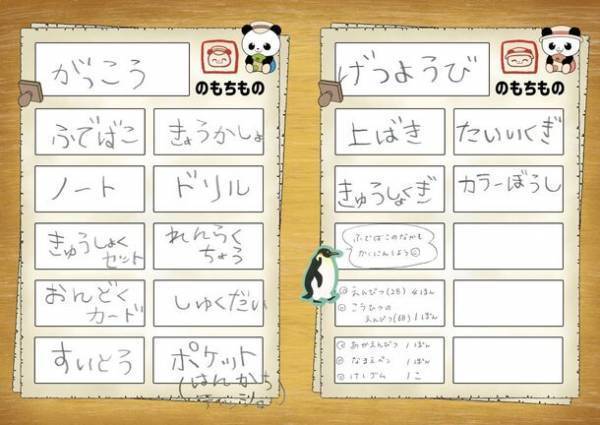 がっこう
のもちもの
ふでばこ
きょうかしょ
ノート
ドリル
きゅうしょく
セット
れんらく
ちょう
おんどく
カード
しゅくだい
すいとう
ポケット
(はんかち
ティッシュ)
げつようび
のもちもの
上ばき
たいいくぎ
きゅうしょくぎ
カラーぼうし
ふでばこのなかも
かくにんしよう
えんぴつ(2B) 4ほん
こうひつの
えんぴつ(6B) 1ぽん
あかえんぴつ 1ぽん
なまえペン 1ぽん
けしごむ 1こ